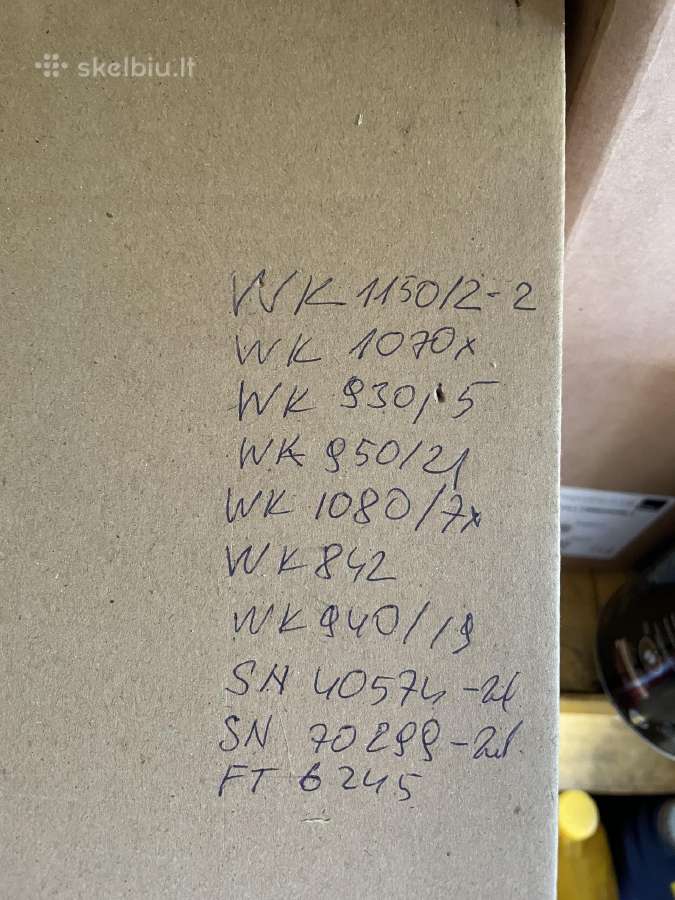 skelbiu.lt
WK 1150/2-2
WK 1070x
WK 930/5
WK 950/21
WK 1080/7x
WK 842
WK 940/19
SN 40574 -2vt.
SN 70299 -2vt.
FT 6245